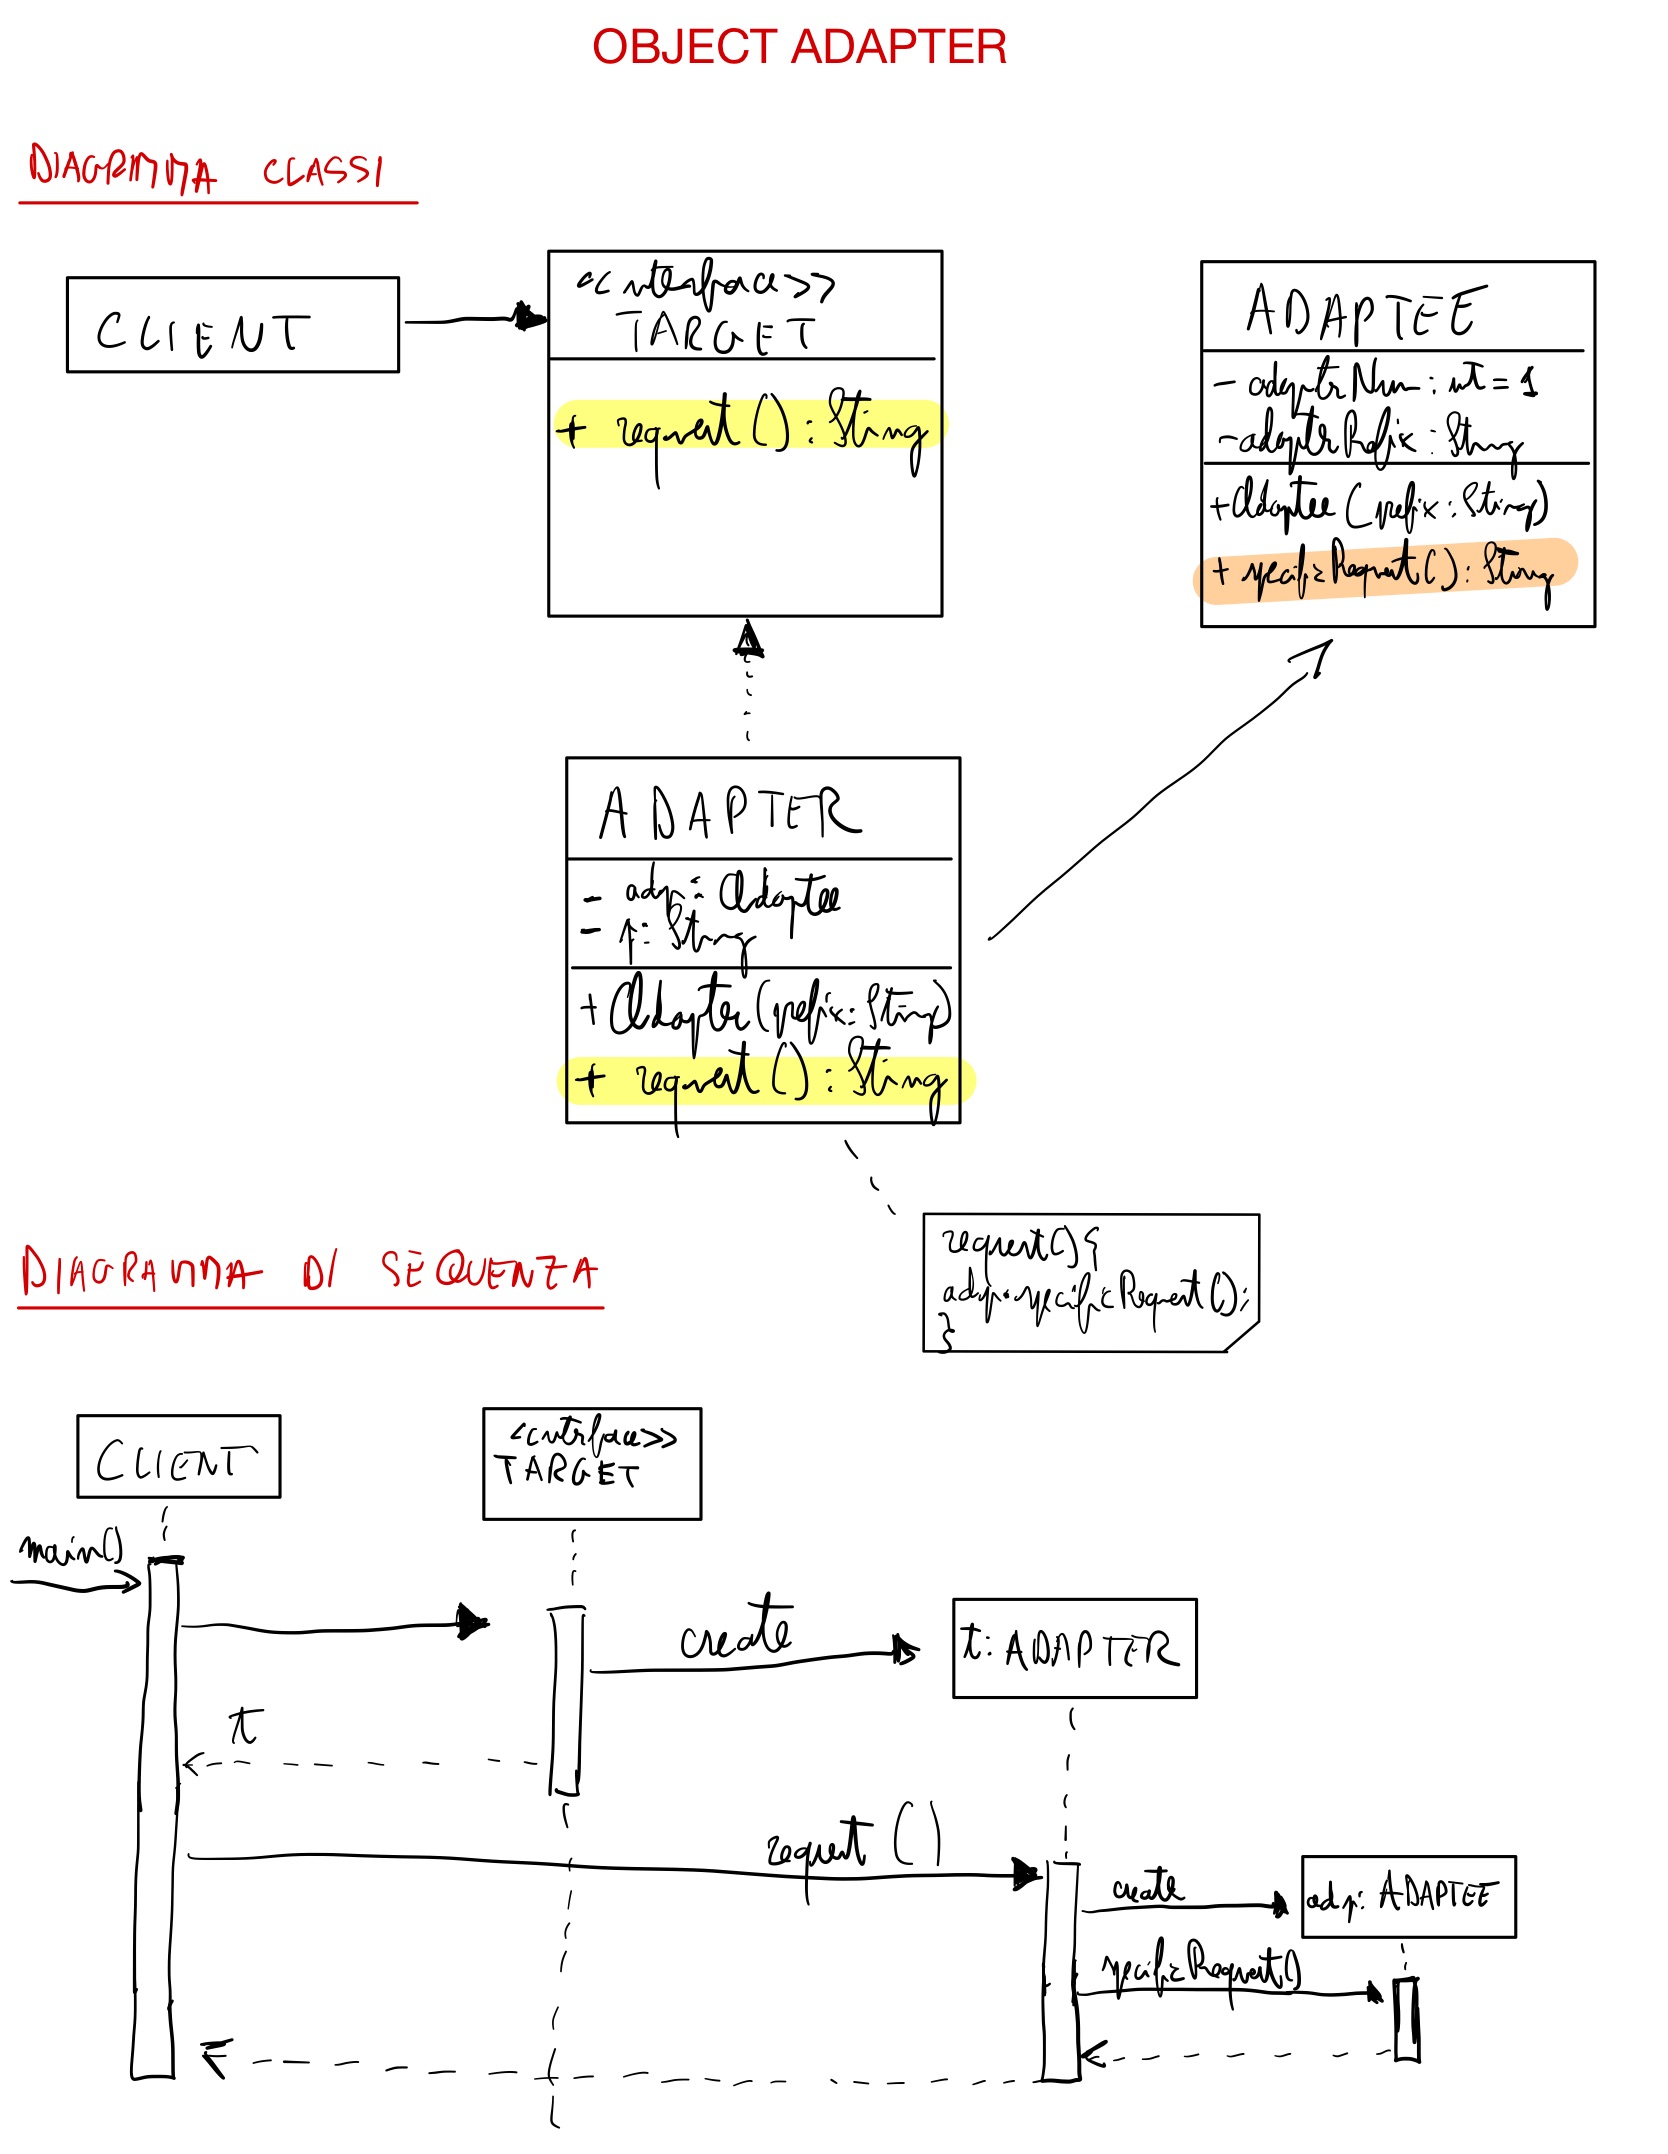 OBJECT ADAPTER
DIAGRAMMA CLASSI
CLIENT
<<interface>>
TARGET
+ request() : String
ADAPTEE
- adapterNum : int = 1
- adapterPrefix : String
+ Adaptee (prefix : String)
+ specificRequest() : String
ADAPTER
- adp : Adaptee
- p : String
+ Adapter (prefix : String)
+ request() : String
request() {
adp.specificRequest();
}
DIAGRAMMA DI SEQUENZA
CLIENT
<<interface>>
TARGET
main()
create
t: ADAPTER
t
request ()
create
adp: ADAPTEE
specificRequest()